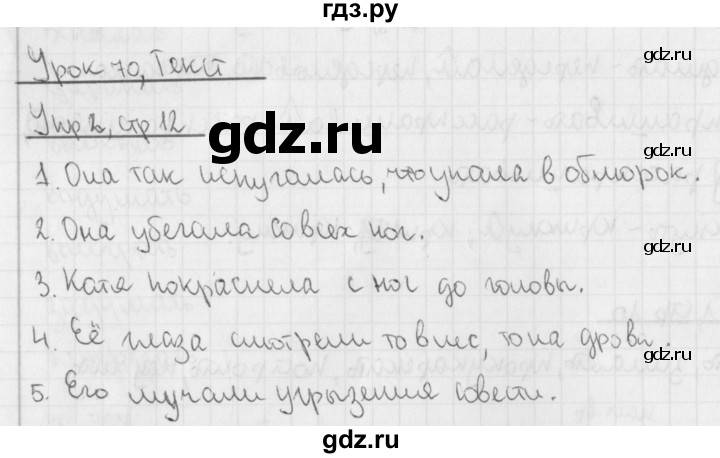 гдз.ру
Урок 70, Текст
gdz.ru
Упр 2, стр 12
gdz.ru
gdz.ru
1. Она так испугалась, что упала в обморок.
gdz.ru
2. Она убегала со всех ног.
gdz.ru
3. Катя покраснела с ног до головы.
4. Её глаза смотрели то в лес, то на дрова.
gdz.ru
5. Его мучали угрызения совести.
gdz.ru
gdz.ru